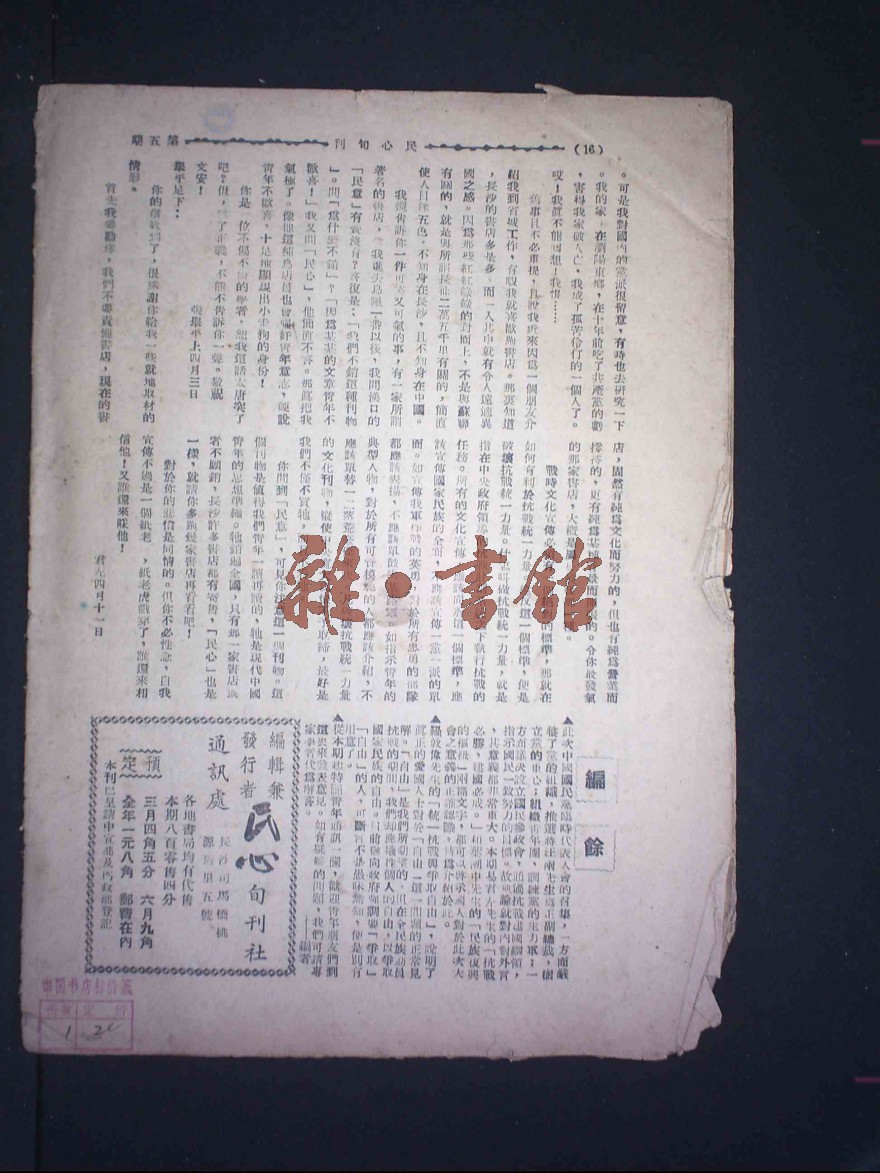 (16)
民心旬刊
第五期
。可是我對國內的黨派很留意，有時也去研究一下
。我的家，在瀏陽東鄉，在十年前吃了共產黨的虧
，害得我家破人亡，我成了孤苦伶仃的一個人了。
哎！我眞不能回想！我恨……
舊事且不必重提，且說我近來因爲一個朋友介
紹我到省城工作，有暇我就喜歡跑書店。那裏知道
，長沙的書店多是多，而一入其中就有令人遠適異
國之感。因爲那些紅紅綠綠的封面上，不是與蘇聯
有關的，就是與所謂長征二萬五千里有關的，簡直
使人目眯五色，不知身在長沙，且不知身在中國。
我還告訴你一件可笑又可氣的事，有一家所謂
著名的書店，我進去鳥瞰一番以後，我問漢口的
「民意」有賣沒有？答復是：「我們不銷這種刊物
」。問「爲什麽不銷」？「因爲某某的文章青年不
歡喜！」我又問「民心」，他簡直不答。那眞把我
氣極了。像他這種爲店員也會強奸青年意志，硬說
青年不歡喜，十足地顯現出小走狗的身份！
你是一位不偏不倚的學者，恕我這話太唐突了
吧？但，爲了正義，不能不告訴你一聲。敬祝
文安！
張舉平上四月三日
舉平足下：
你的信收到了，很感謝你給我一些就地取材的
情形。
首先我要勸你，我們不要責備書店，現在的書
店，固然有純爲文化而努力的，但也有純爲營業而
撐持的，更有純爲某種背景而設的。令你最發氣
的那家書店，大概是
戰時文化宣傳必
的標準，那就在
如何有利於抗戰統一力量。
反這一個標準，便是
破壞抗戰統一力量。什麽叫做
統一力量，就是
指在中央政府領導
下執行抗戰的
任務。所有的文化宣傳
應該向
這一個標準，應
該宣傳國家民族的全面，不應該宣傳一黨一派的單
面。如宣傳我軍作戰的英勇，對於所有忠勇的部隊
都應該表揚，不應該單鼓
如指示青年的
典型人物，對於所有可資模範的人都應該介紹，不
應該單替一二
的文化刊物，縱使中央
取締，最好是
我們不僅不買牠，
壞抗戰統一力量
你問到「民意」，可見你
這一個刊物。這
個刊物是值得我們青年一讀再讀的，牠是現代中國
青年的思想準繩。牠銷遍全國，只有那一家書店或
者不願銷，長沙許多書店都有寄售，「民心」也是
一樣，就請你多跑幾家書店再看看吧！
對於你的悲憤是同情的。但你不必性急，自我
宣傳不過是一個紙老虎，紙老虎戳穿了，誰還來相
信他！又誰還來睬他！
君左四月十一日
編餘
▲此次中國國民黨臨時代表大會的召集，一方面嚴
整了黨的組織，推選蔣汪兩先生爲正副總裁，樹
立黨的重心；組織青年團，訓練黨的生力軍；一
方面議決設立國民參政會，通過抗戰建國綱領，
指示國民一致努力的目標。故無論就對內對外言
，其意義都非常重大。本期易君左先生的「抗戰
必勝，建國必成。」和葉溯中先生的「民族復興
的樞紐」兩篇文字，都可以啓示國人對於此次大
會之意義的正確認識，特爲介紹於此。
▲羅敦偉先生的「統一抗戰與爭取自由」，說明了
眞正的愛國人士對於「自由」這一問題的正當見
解。「自由」是我們所期望的，但在全民族動員
抗戰的期間，我們却應犧牲個人的自由，以爭取
國家民族的自由。目前還向政府強調要「爭取」
「自由」的人，可斷言不是愚昧無知，便是別有
用意了。
▲從本期起特闢青年通訊一欄，歡迎青年朋友們對
這裏來發表意見。如有疑難的問題，我們可請專
家學者代爲解答。
——編者
編輯兼
發行者
民心旬刊社
通訊處
長沙司馬橋桃
源新里五號
各地書局均有代售
本期八百零售四分
預定
三月四角五分 六月九角
全年一元八角 郵費在內
本刊已呈請中宣部及內政部登記
雜·書館
中国书店标价签
册数 定价
1